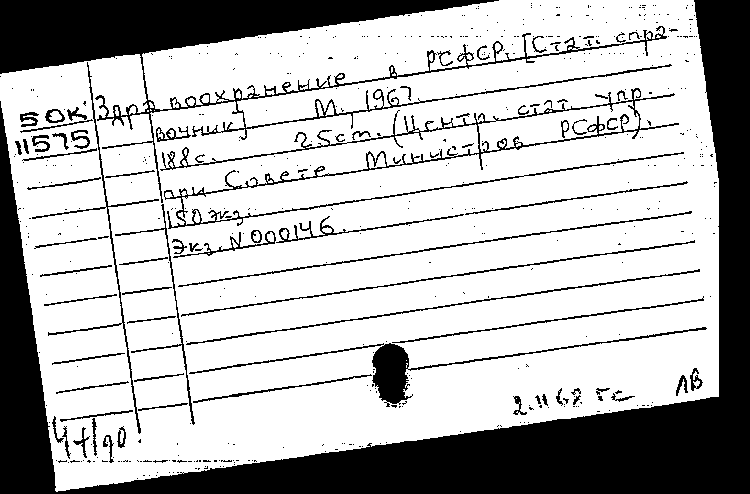 50К Здравоохранение в РСФСР. [Стат. спра-
11575 вочник] М., 1967.
188 с. 25 см. (Центр. стат. упр.
при Совете Министров РСФСР).
150 экз.
Экз. N 000146.
2.11 68 гс ЛВ